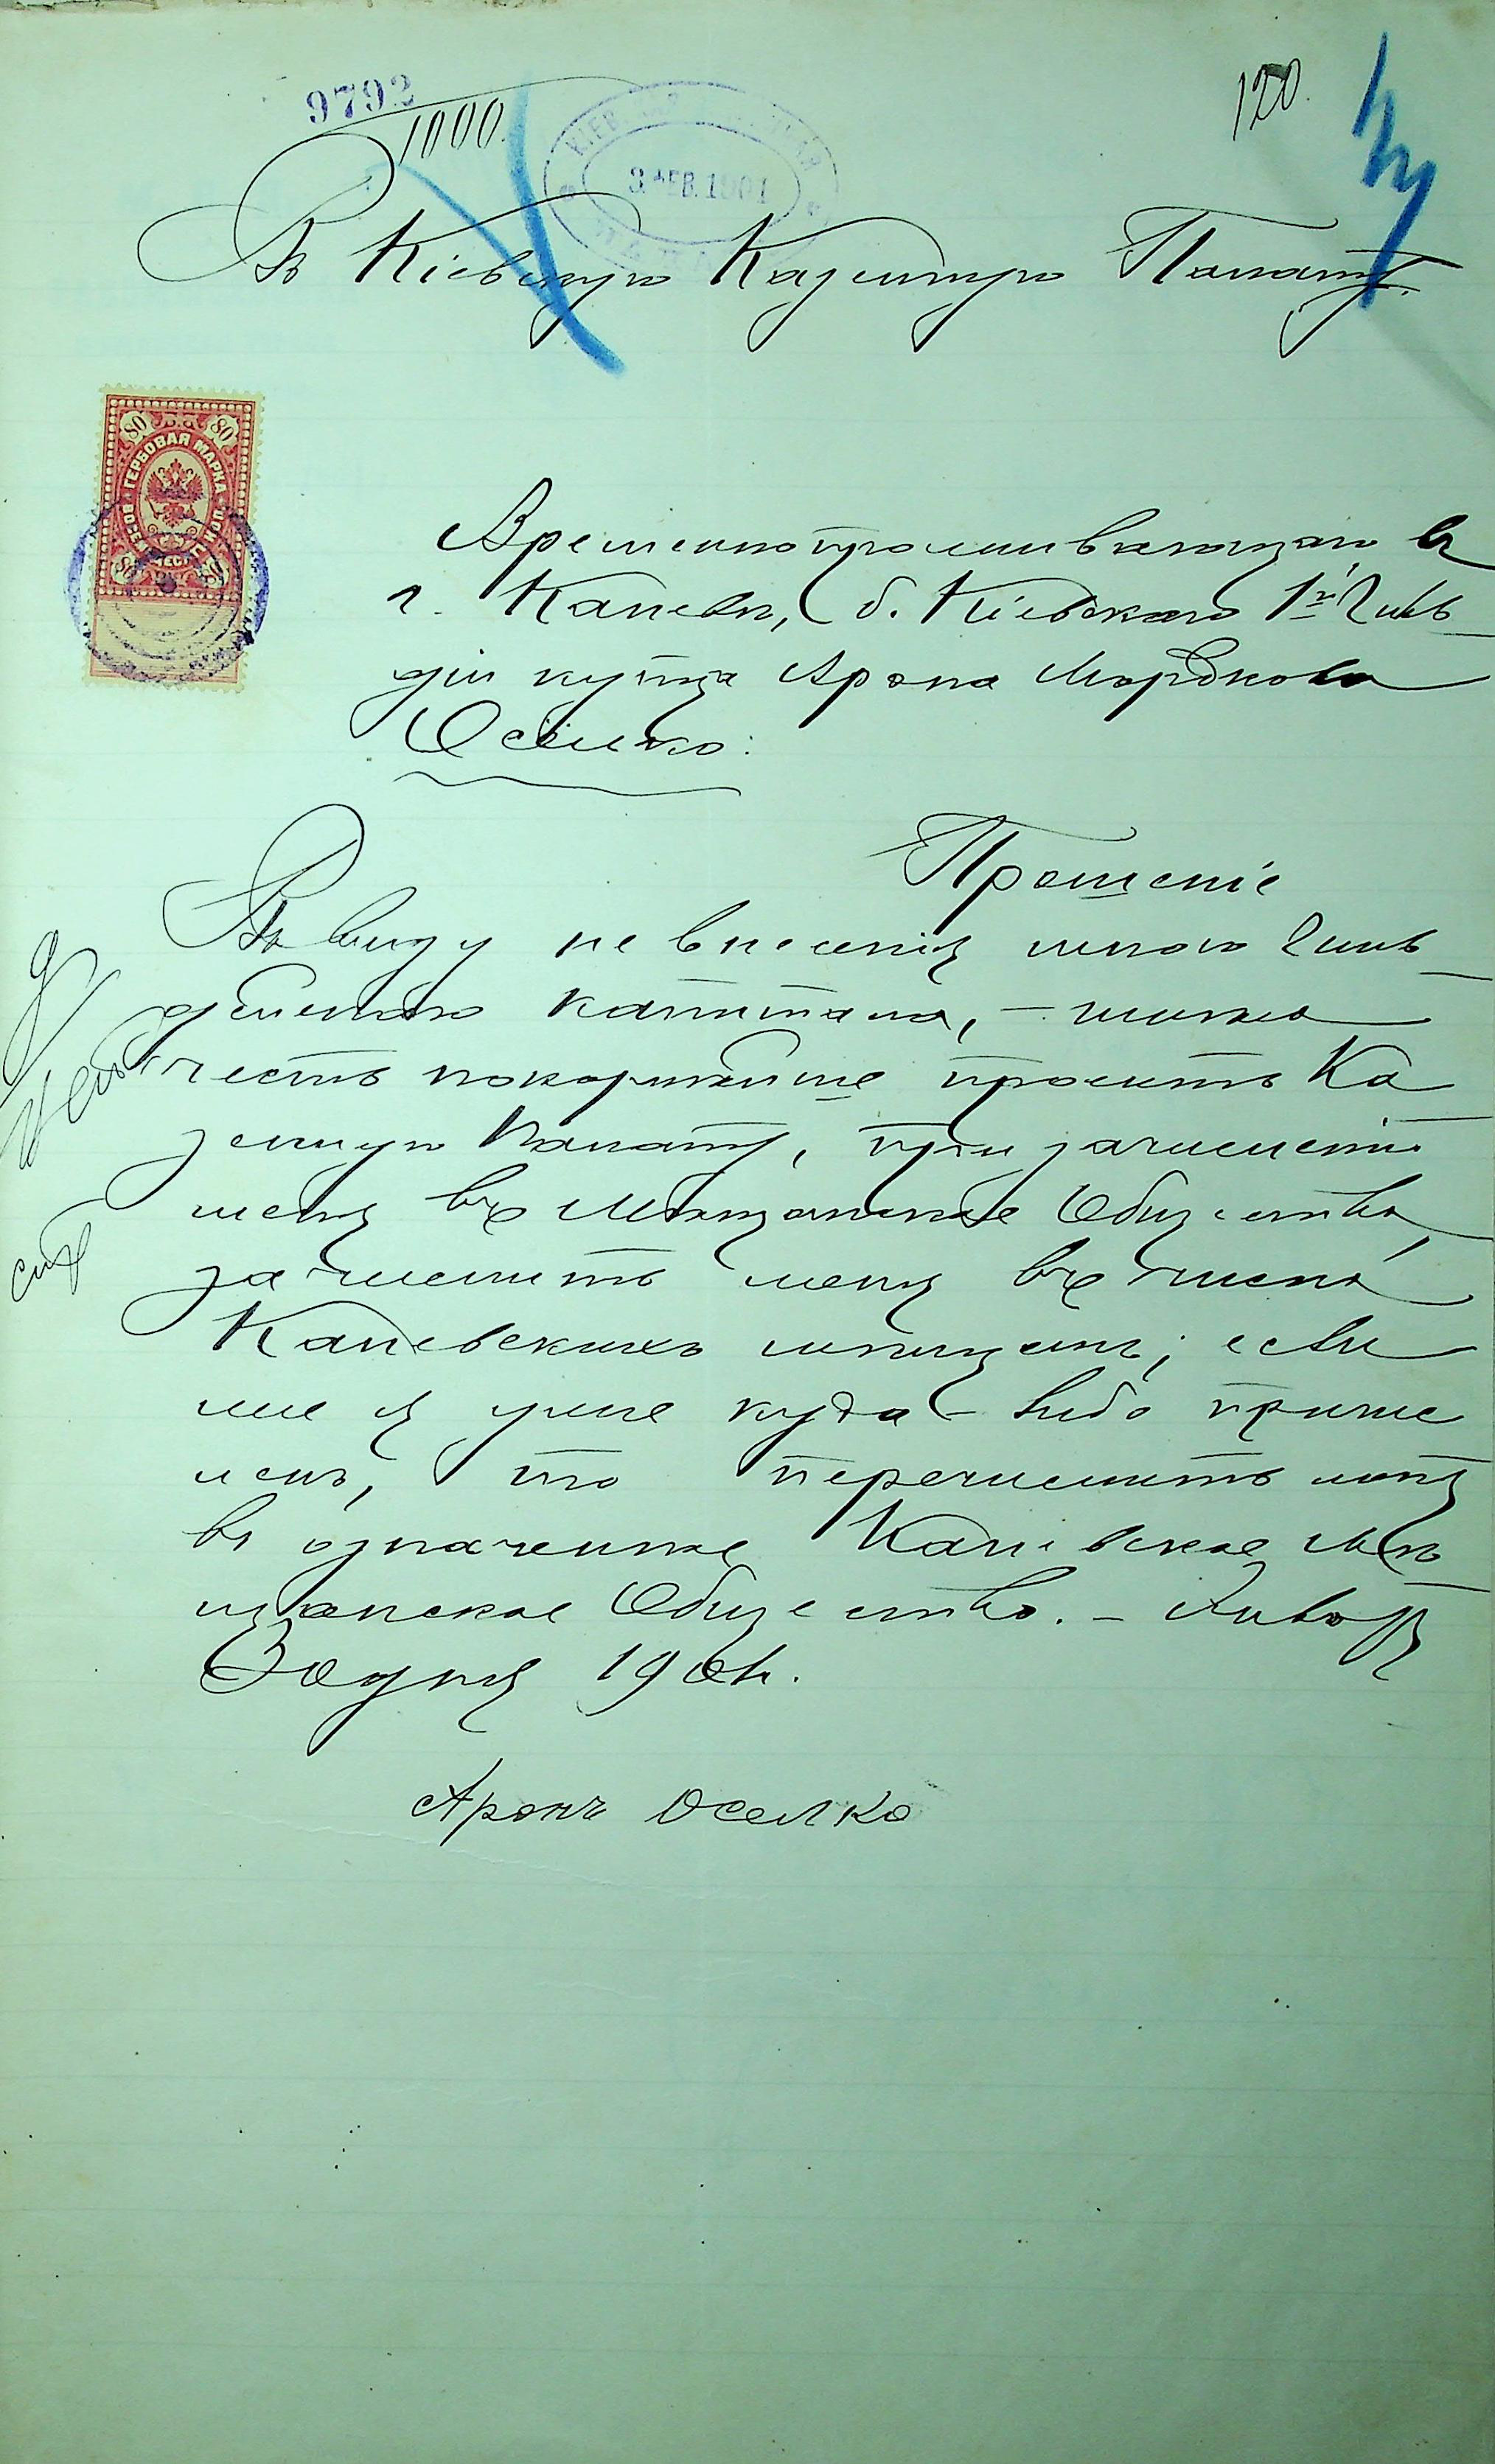 9792
1000
120
КІЕВСКАЯ
3 ФЕВ. 1901
Въ Кіевскую Казенную Палату.
80 80
ГЕРБОВАЯ МАРКА
ВОСЕМЬДЕСЯТЪ КОП.
Временно проживающаго въ
г. Каневѣ, б. Кіевскаго 1й Гиль
діи купца Арона Мордкова
Осёлко:
Прошеніе
Въ виду не внесенія мною Гиль
дейскаго капитала, – имѣю
честь покорнѣйше просить Ка
зенную Палату, при зачисленіи
меня въ Мѣщанское Общество,
зачислить меня въ число
Каневскихъ мѣщанъ; если
же я уже куда-либо причи
сленъ, то перечислить меня
въ означенное Каневское Мѣ
щанское Общество. – Января
30 дня 1901 г.
Аронъ Оселко